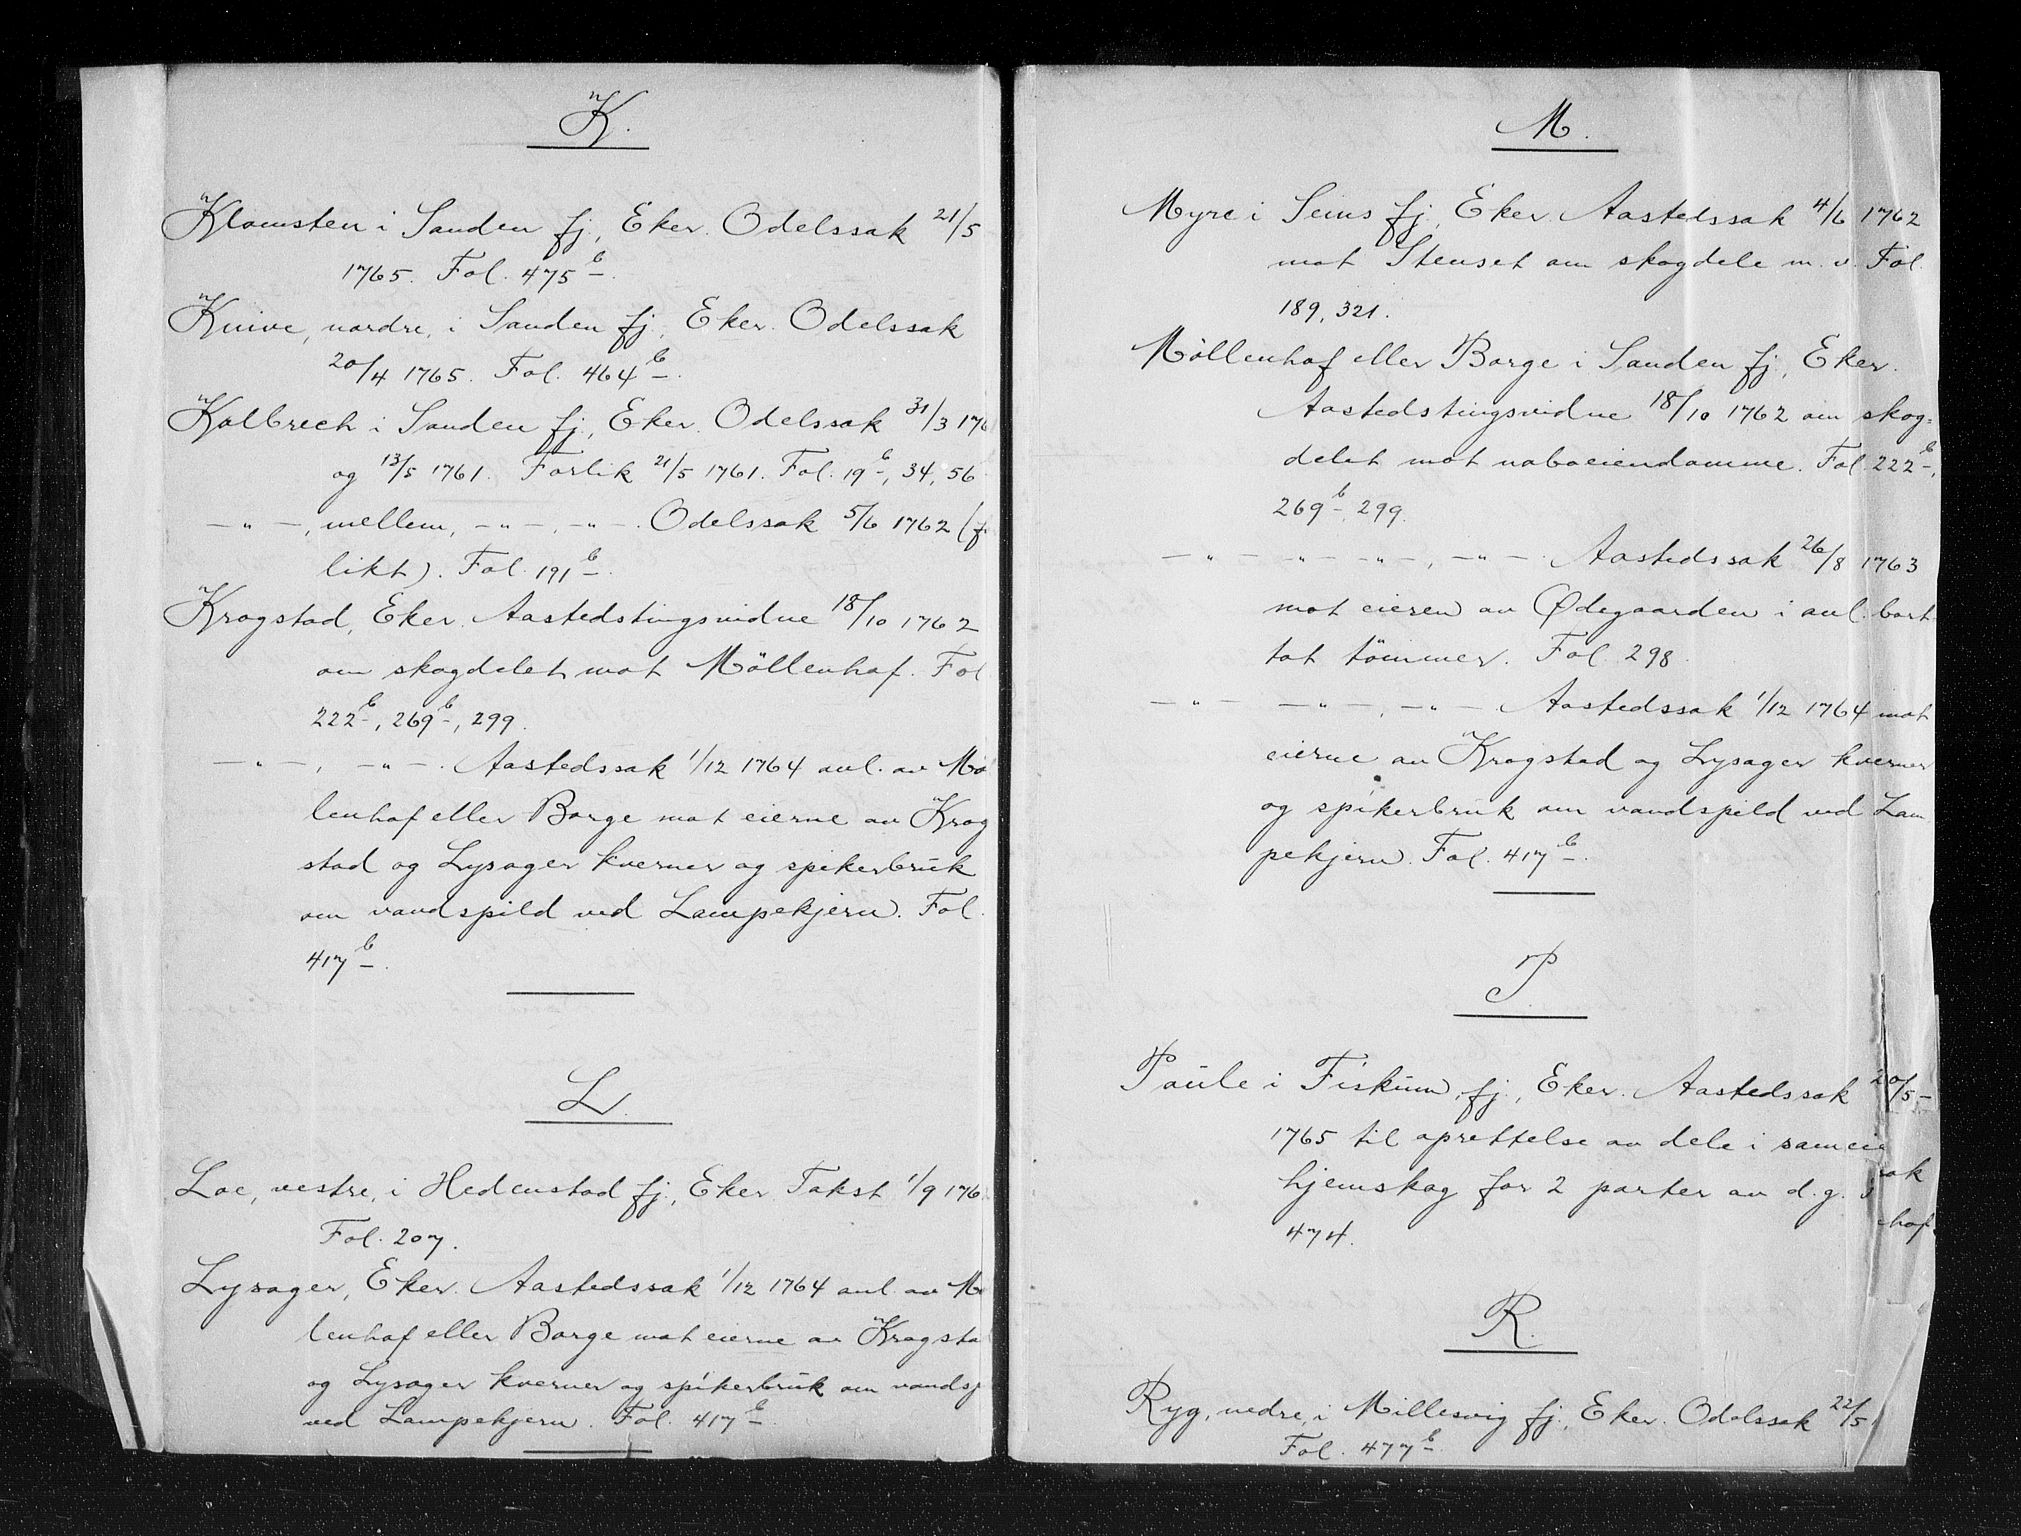 K.
Klomsten i Sanden fj, Eker. Odelssak 21/5
1765. Fol. 475 b.
Knive, nordre, i Sanden fj, Eker. Odelssak
20/4 1765. Fol. 464 b.
Kolbrech i Sanden fj, Eker. Odelssak 31/3 176
og 13/5 1761. Forlik 21/5 1761. Fol. 19 b, 34, 56
— " —, mellem, — " —, — " —. Odelssak 5/6 1762 (f
likt). Fol. 191 b.
Krogstad, Eker. Aastedstingsvidne 18/10 1762
om skogdelet mot Möllenhof. Fol
222 b, 269 b, 299.
— " —, — " —. Aastedssak 1/12 1764 anl. av Mö
lenhof eller Borge mot eierne av Krog
stad og Lysager kverner og spikerbruk
om vandspild ved Lampekjern. Fol.
417 b.
L.
Loe, vestre, i Hedenstad fj, Eker. Takst 1/9 176
Fol. 207.
Lysager, Eker. Aastedssak 1/12 1764 anl. av M
lenhof eller Borge mot eierne av Krogsta
og Lysager kverner og spikerbruk om vandsp
ved Lampekjern. Fol. 417 b.
M.
Myre i Sems fj, Eker. Aastedssak 4/6 1762
mot Stenset om skogdele m. v. Fol.
189, 321.
Möllenhof eller Borge i Sanden fj, Eker.
Aastedstingsvidne 18/10 1762 om skog=
delet mot naboeiendomme. Fol. 222 b,
269 b, 299.
— " — — " — — " —, — " —. Aastedssak 26/8 1763
mot eieren av Ødegaarden i anl. bort
tat tömmer. Fol. 298.
— " — — " —, — " — Aastedssak 1/12 1764 mot
eierne av Krogstad og Lysager kverner
og spikerbruk om vandspild ved Lam
pekjern. Fol. 417 b.
P.
Paule i Fiskum fj, Eker. Aastedssak 20/5 —
1765 til oprettelse av dele i sameie
hjemskog for 2 parter av d. g.
474.
R.
Ryg, nedre, i Millesvig fj, Eker. Odelssak 22/5
Fol. 477 b.